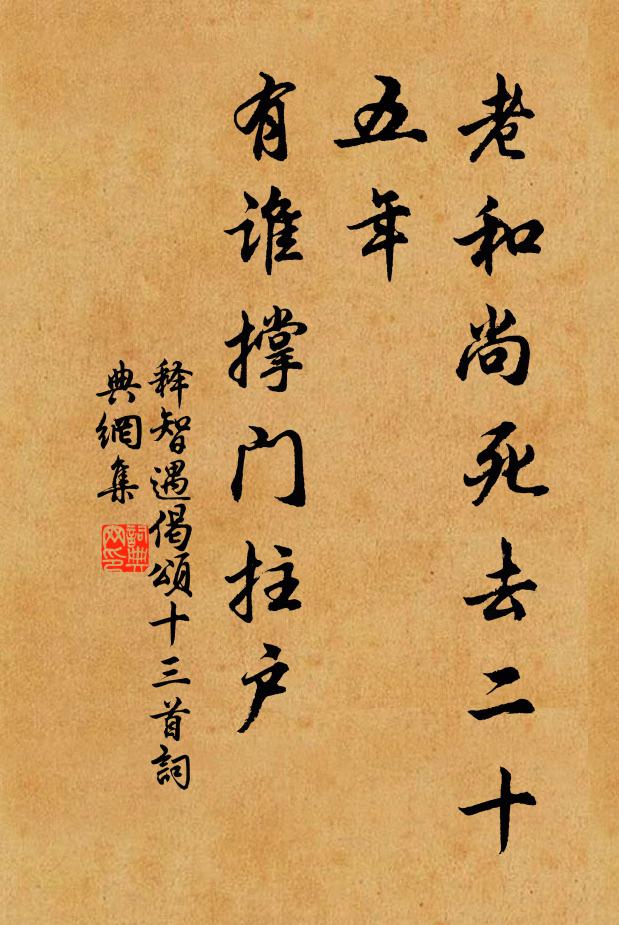 老和尚死去二十
五年
有谁撑门拄户
释智遇偈颂十三首詞
典網集
詞典
网印